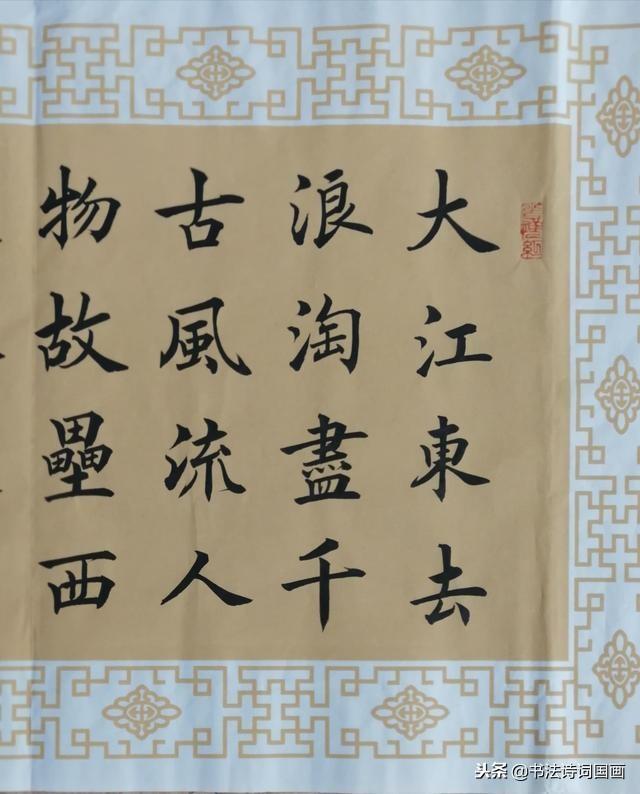 大江東去
浪淘盡千
古風流人
物故壘西
头条 @书法诗词国画